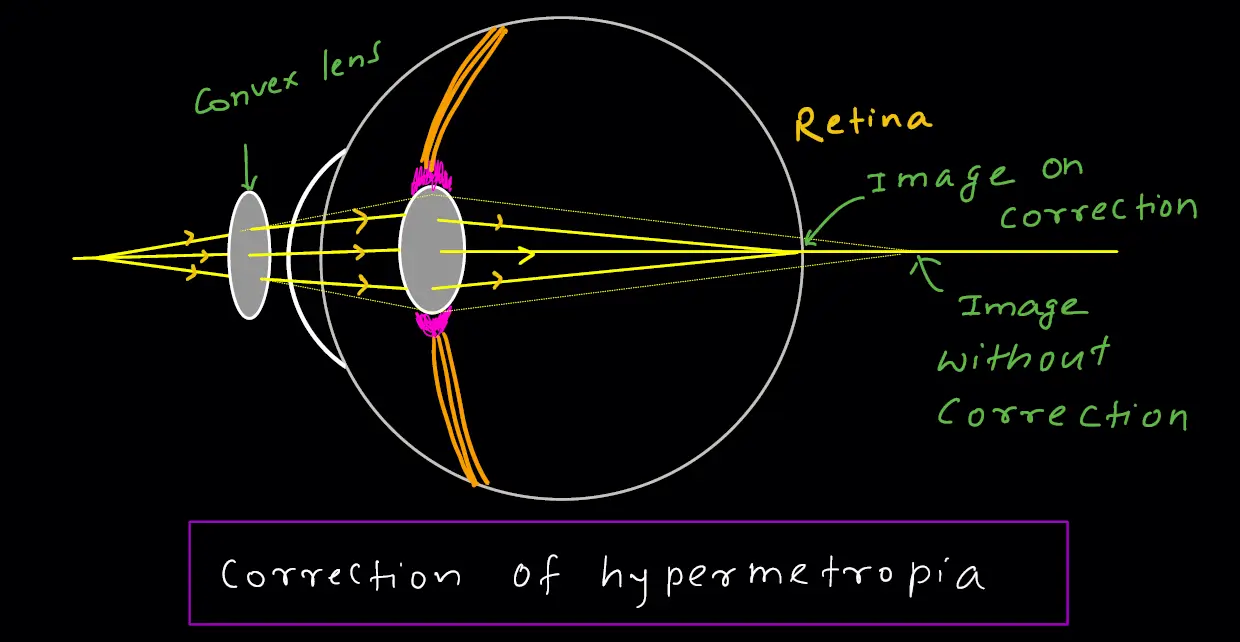 Convex lens
Retina
Image on
correction
Image
without
Correction
Correction of hypermetropia